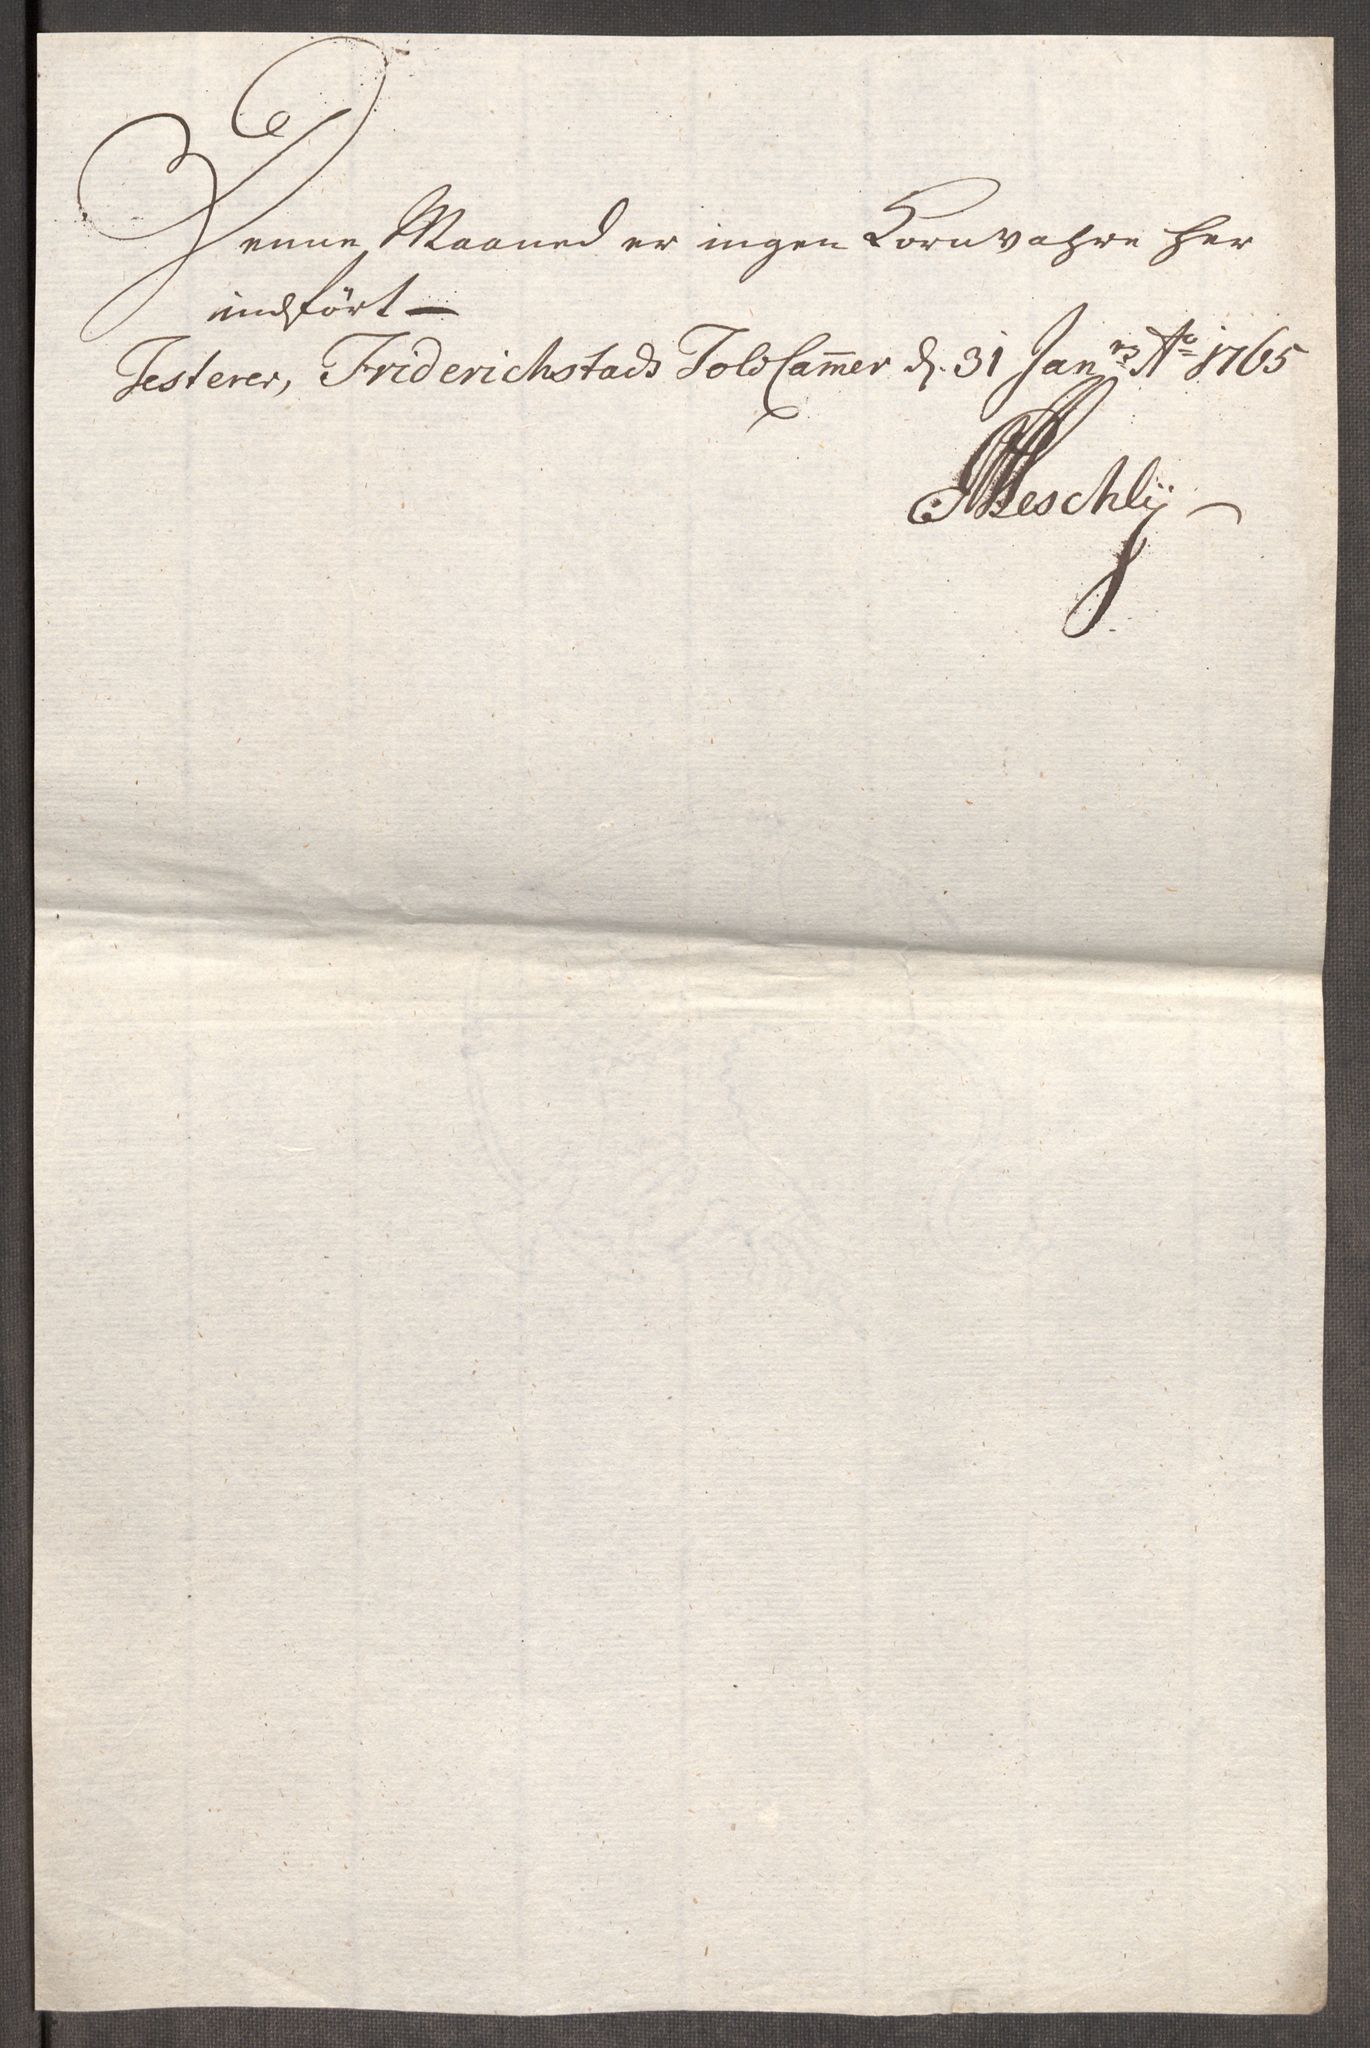 Denne Maaned er ingen Kornvahre her
indført —
Testerer, Friderichstads Told Cam̄er d. 31 Janrȷ Ao 1765